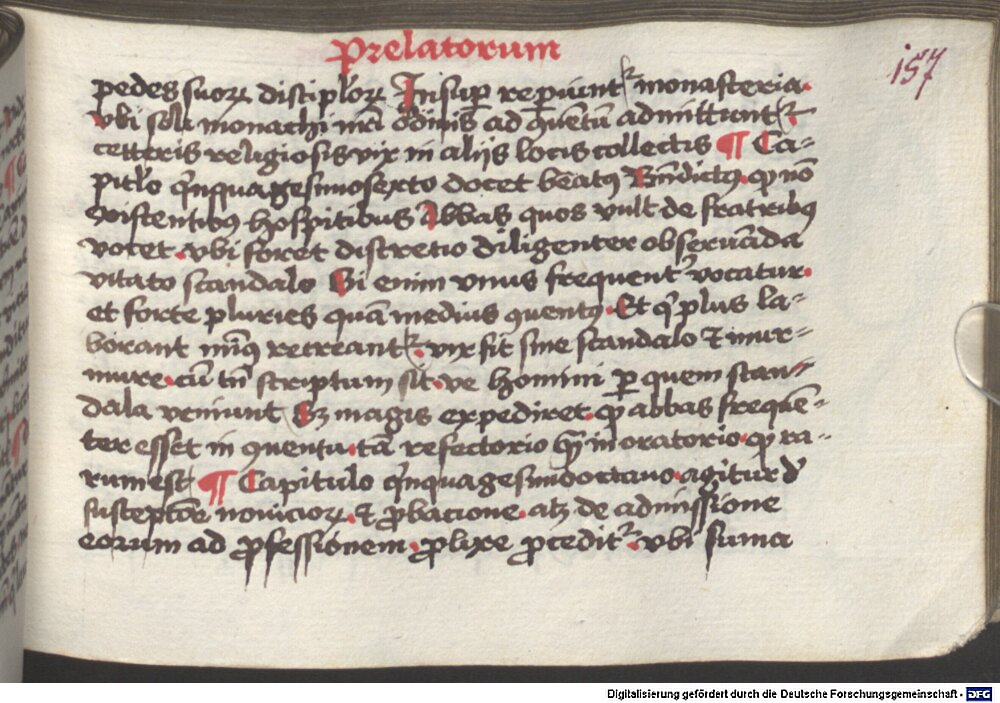 Prelatorum
157
pedes suoꝝ discipl'oꝝ Insuꝑ reꝑiunt᷑ monasteria.
vbi soli monachi nr̄i ordinis ad ꝯuentū admittunt᷑.
cetteris religiosis vix in alijs locis collectis ¶ Ca-
pitl'o q̇nquagesimosexto docet beatꝰ Bn̄dictꝰ. ꝙ nō
existentibus hospitibus Abbas quos vult de fratribꝰ
vocet. vbi foret discretio diligenter obseruāda
vitato scandalo Si enim vnus frequent᷑ vocatur.
et forte pluries quam medius ꝯuentꝰ. Et q̇ plus la-
borant minꝰ recreant᷑. vix fit sine scandalo ⁊ mur-
mure. cū tn̄ scriptum sit. ve homini ꝑ quem scan-
dala veniunt Sꝫ magis expediret. ꝙ abbas frequē-
ter esset in ꝯuentu. tā refectorio qͣm in oratorio. ꝙ ra-
rum est ¶ Capitulo q̇nquagesimooctauo. agitur d'
susceptōe nouicioꝝ. ⁊ ꝓbacione. atꝫ de admissione
eorum ad ꝓfessionem. ꝓlixe ꝓcedit᷑. vbi suma
Digitalisierung gefördert durch die Deutsche Forschungsgemeinschaft - DFG